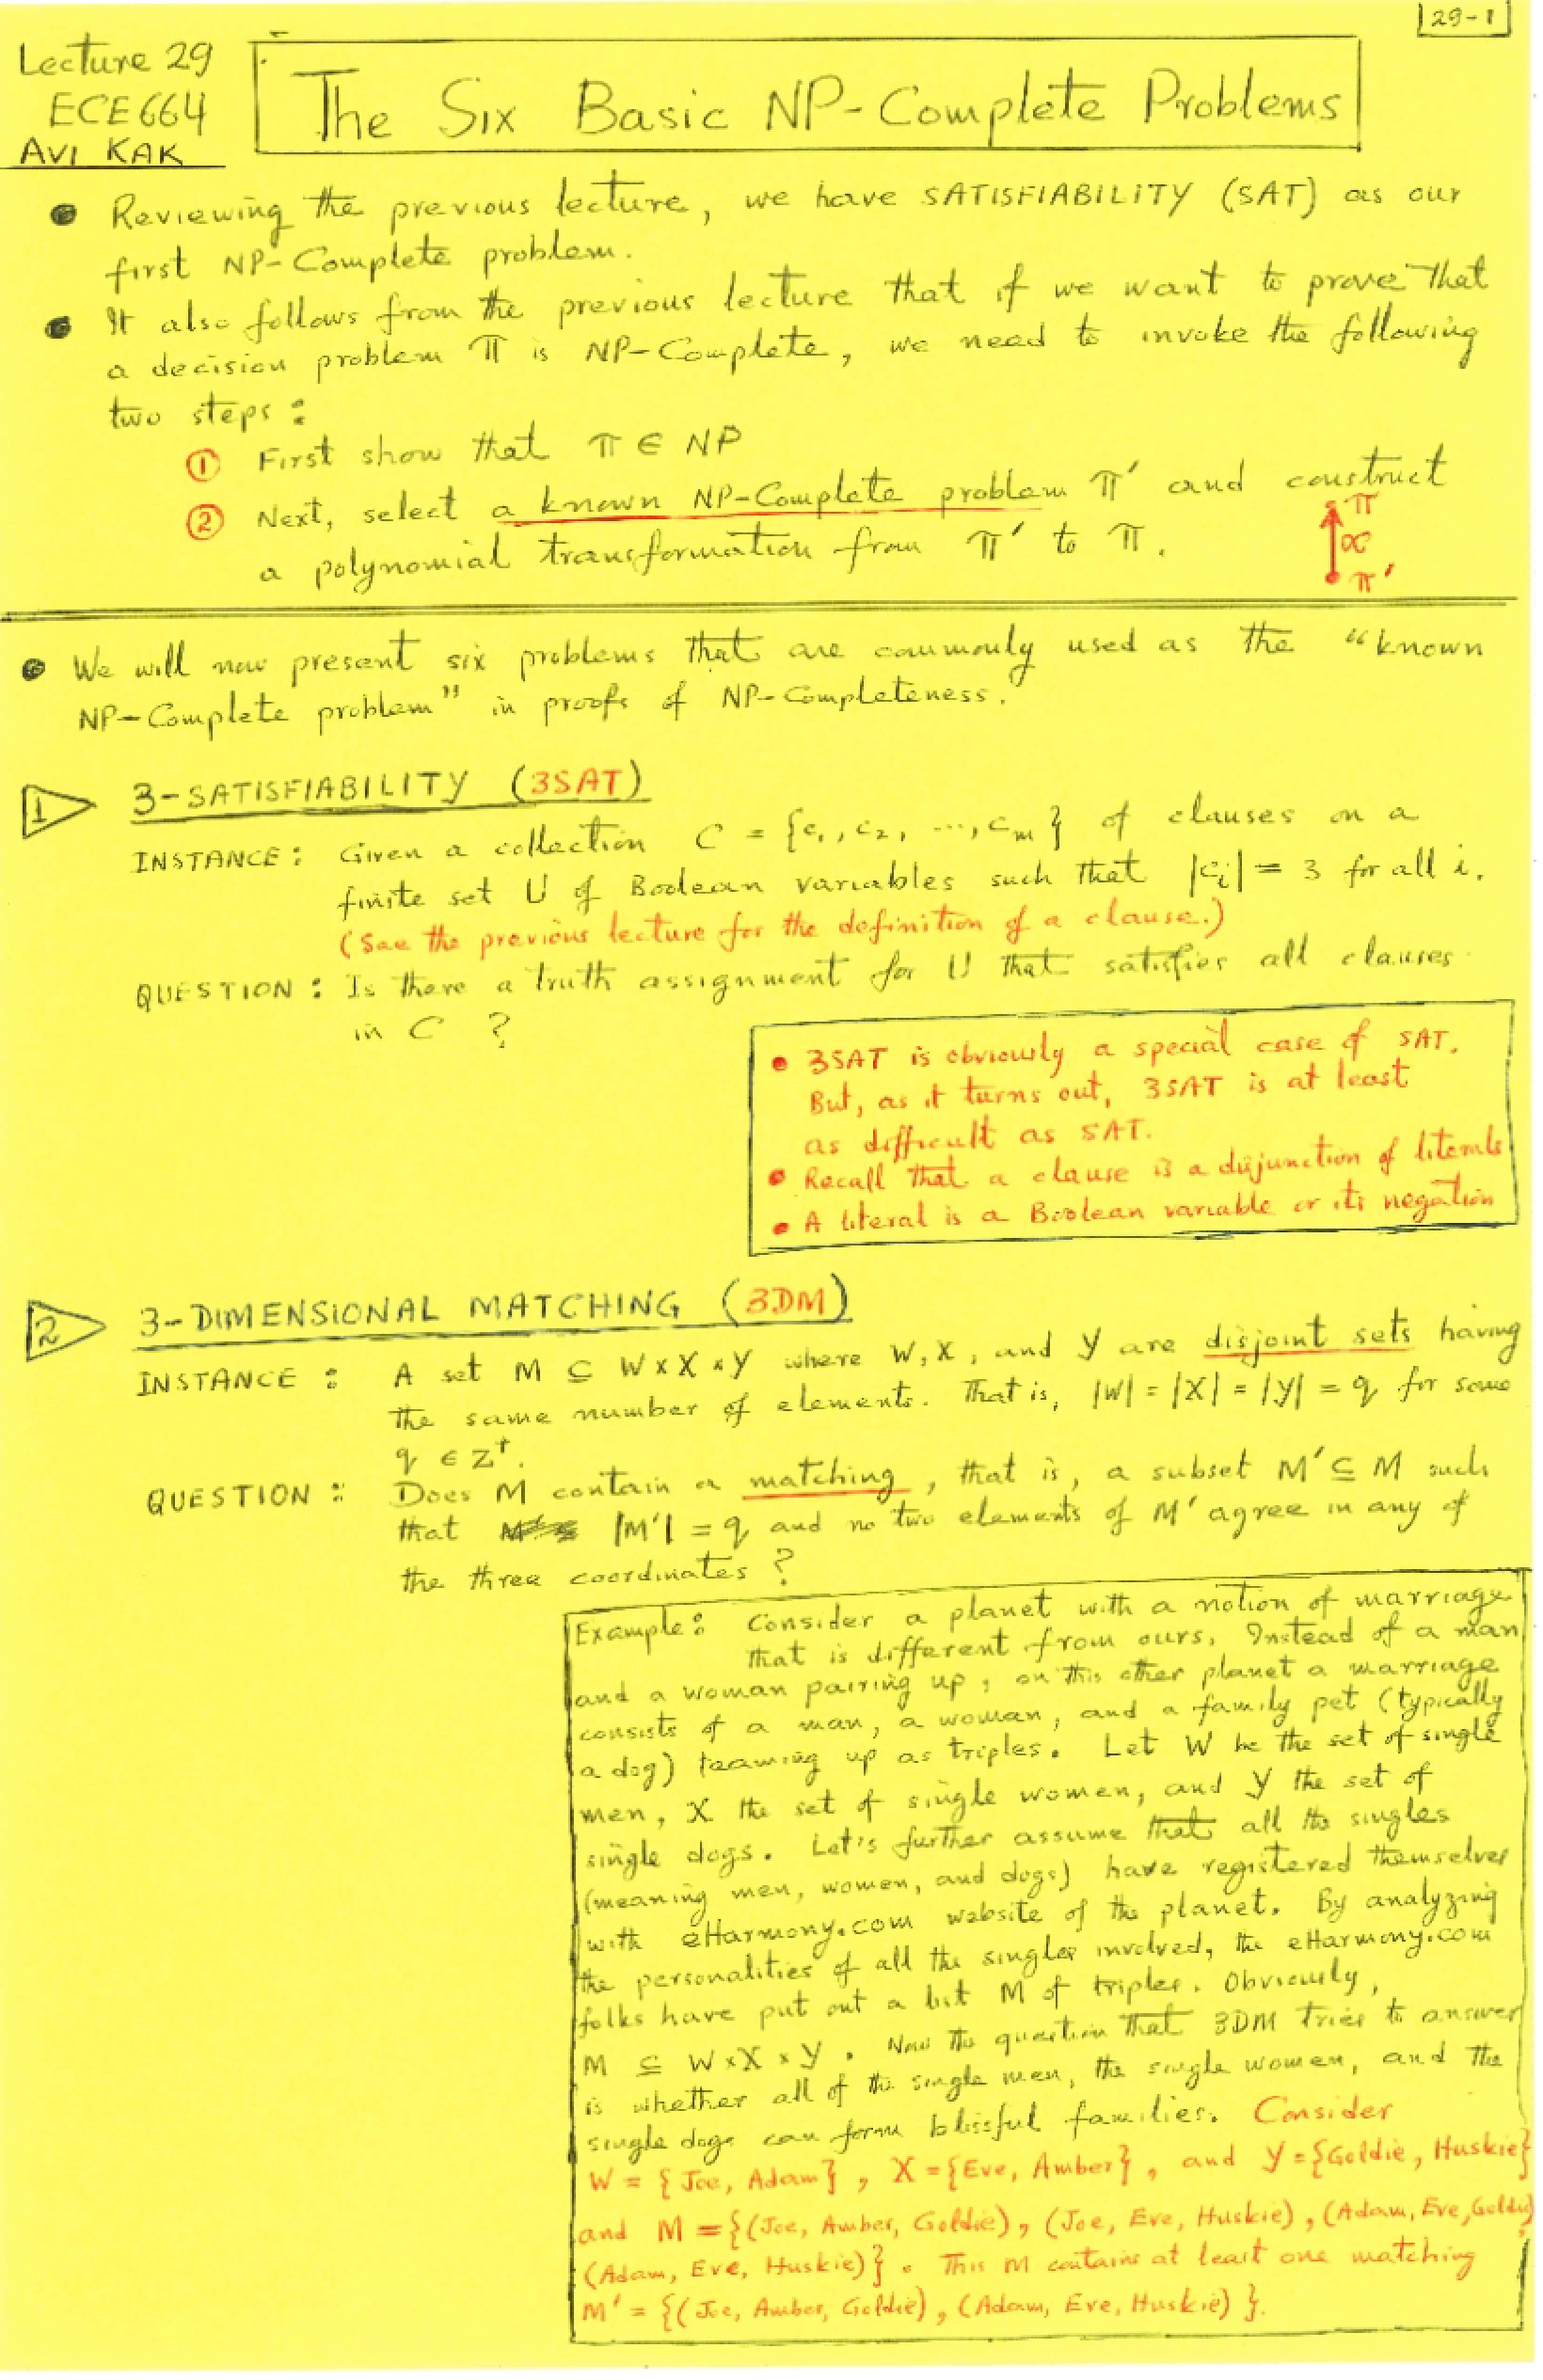 29-1
Lecture 29
ECE 664
AVI KAK
The Six Basic NP-Complete Problems
• Reviewing the previous lecture, we have SATISFIABILITY (SAT) as our
first NP-Complete problem.
• It also follows from the previous lecture that if we want to prove that
a decision problem Π is NP-Complete, we need to invoke the following
two steps:
① First show that Π ∈ NP
② Next, select a known NP-Complete problem Π′ and construct
a polynomial transformation from Π′ to Π.
Π
∝
Π′
• We will now present six problems that are commonly used as the "known
NP-Complete problem" in proofs of NP-Completeness.
1 3-SATISFIABILITY (3SAT)
INSTANCE: Given a collection C = {c₁, c₂, ..., cₘ} of clauses on a
finite set U of Boolean variables such that |cᵢ| = 3 for all i.
(See the previous lecture for the definition of a clause.)
QUESTION: Is there a truth assignment for U that satisfies all clauses
in C ?
• 3SAT is obviously a special case of SAT.
But, as it turns out, 3SAT is at least
as difficult as SAT.
• Recall that a clause is a disjunction of literals
• A literal is a Boolean variable or its negation
2 3-DIMENSIONAL MATCHING (3DM)
INSTANCE: A set M ⊆ W×X×Y where W, X, and Y are disjoint sets having
the same number of elements. That is, |W| = |X| = |Y| = q for some
q ∈ Z⁺.
QUESTION: Does M contain a matching, that is, a subset M′ ⊆ M such
that |M′| = q and no two elements of M′ agree in any of
the three coordinates?
Example: Consider a planet with a notion of marriage
that is different from ours. Instead of a man
and a woman pairing up, on this other planet a marriage
consists of a man, a woman, and a family pet (typically
a dog) teaming up as triples. Let W be the set of single
men, X the set of single women, and Y the set of
single dogs. Let's further assume that all the singles
(meaning men, women, and dogs) have registered themselves
with eHarmony.com website of the planet. By analyzing
the personalities of all the singles involved, the eHarmony.com
folks have put out a list M of triples. Obviously,
M ⊆ W×X×Y. Now the question that 3DM tries to answer
is whether all of the single men, the single women, and the
single dogs can form blissful families. Consider
W = {Joe, Adam}, X = {Eve, Amber}, and Y = {Goldie, Huskie}
and M = {(Joe, Amber, Goldie), (Joe, Eve, Huskie), (Adam, Eve, Goldie),
(Adam, Eve, Huskie)}. This M contains at least one matching
M′ = {(Joe, Amber, Goldie), (Adam, Eve, Huskie)}.